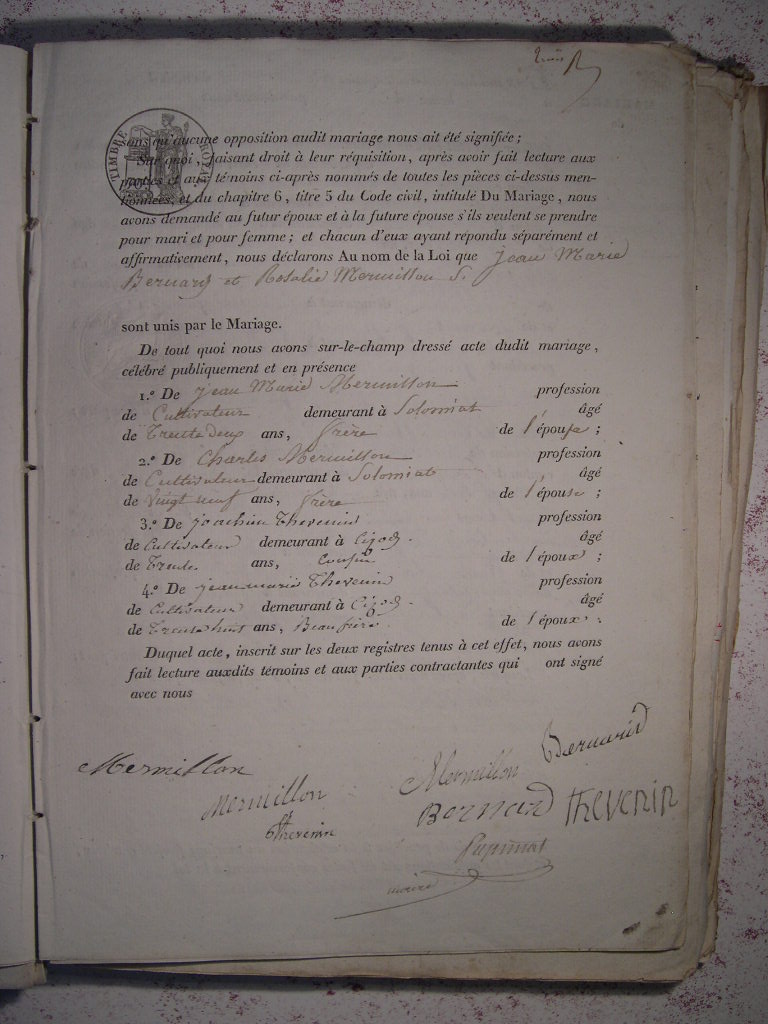 TIMBRE ROYAL
sans qu'aucune opposition audit mariage nous ait été signifiée ;
Sur quoi, faisant droit à leur réquisition, après avoir fait lecture aux
parties et aux témoins ci-après nommés de toutes les pièces ci-dessus men-
tionnées, et du chapitre 6, titre 5 du Code civil, intitulé Du Mariage, nous
avons demandé au futur époux et à la future épouse s'ils veulent se prendre
pour mari et pour femme ; et chacun d'eux ayant répondu séparément et
affirmativement, nous déclarons Au nom de la Loi que Jean Marie
Bernard et Rosalie Mermillon
sont unis par le Mariage.
De tout quoi nous avons sur-le-champ dressé acte dudit mariage,
célébré publiquement et en présence
1.º De Jean Marie Mermillon profession
de Cultivateur demeurant à Solomiat âgé
de Trente deux ans, frère de l'épouse ;
2.º De Charles Mermillon profession
de Cultivateur demeurant à Solomiat âgé
de Vingt neuf ans, frère de l'épouse ;
3.º De joachim Thevenin profession
de Cultivateur demeurant à Cizod. âgé
de Trente ans, cousin de l'époux ;
4.º De jean marie Thevenin profession
de Cultivateur demeurant à Cizod. âgé
de Trente huit ans, Beau frère. de l'époux.
Duquel acte, inscrit sur les deux registres tenus à cet effet, nous avons
fait lecture auxdits témoins et aux parties contractantes qui ont signé
avec nous
Bernard
Mermillon Mermillon
Mermillon Bernard thevenin
Thevenin
maire